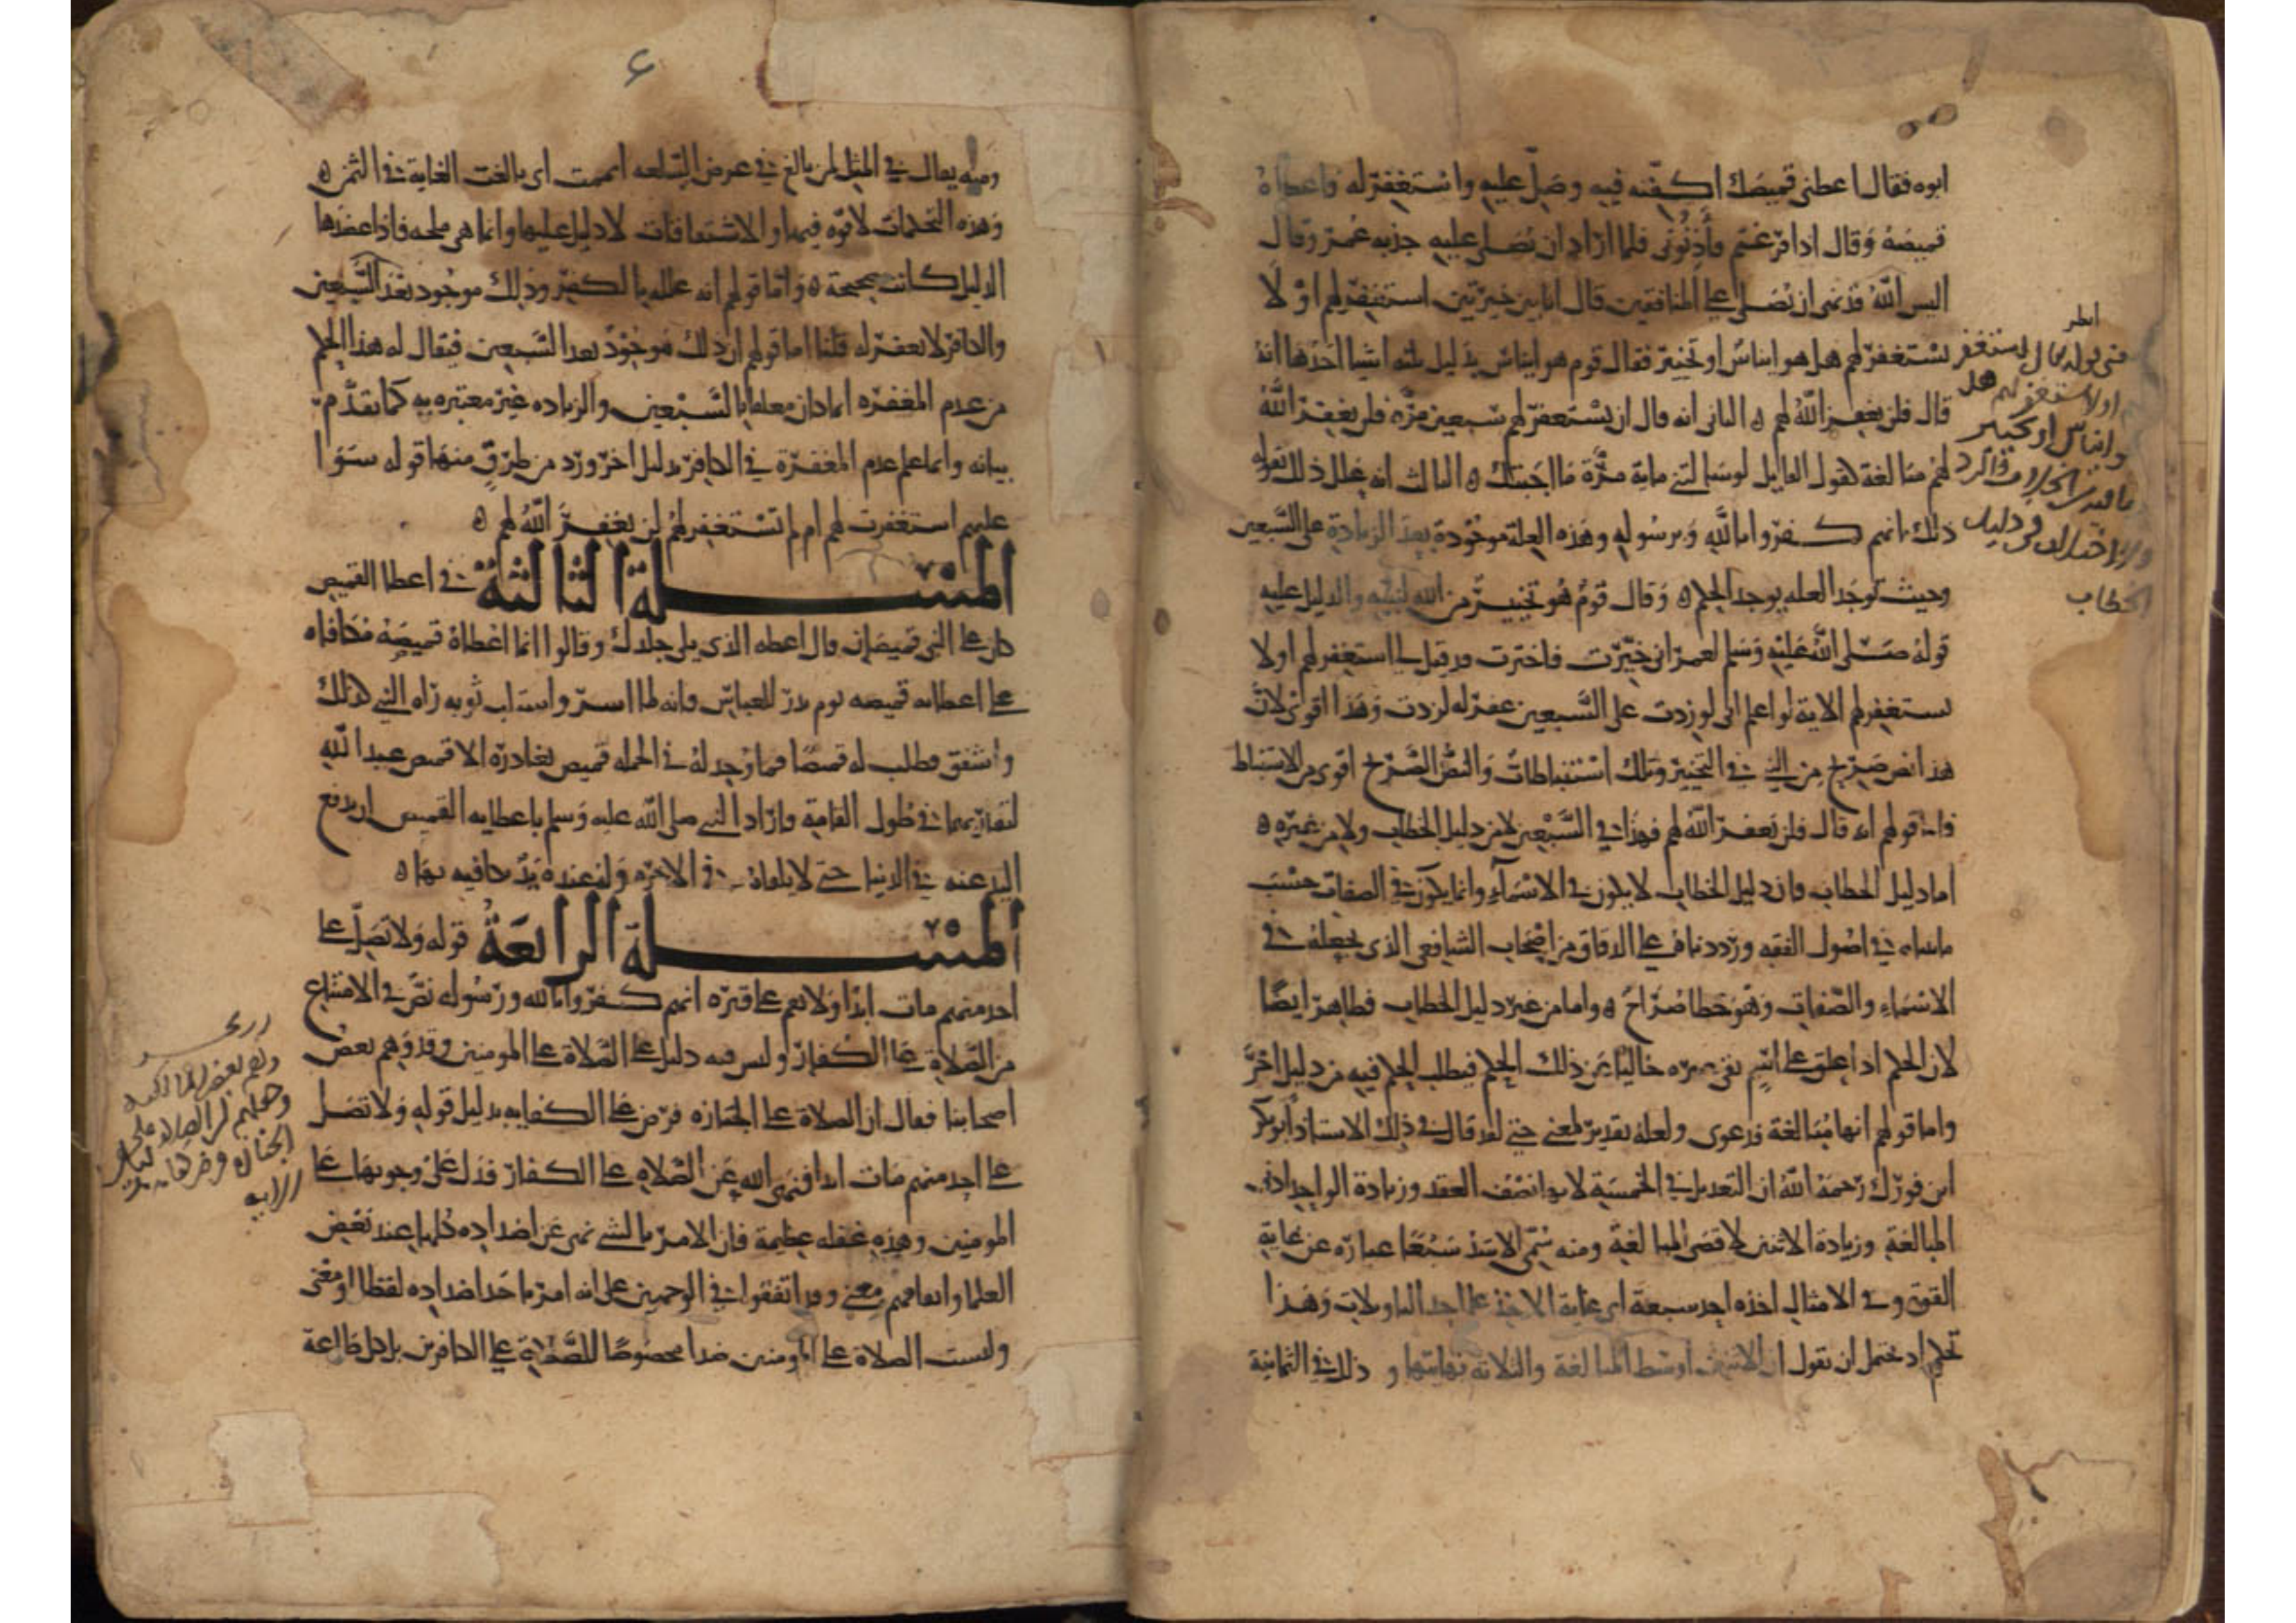 ابوه فقال اعطنى قميصك اكفنه فيه وصل عليه واستغفر له فاعطاه
قميصه وقال اذا فرغتم فأذنونى فلما اراد ان يصلى عليه جذبه عمر وقال
اليس الله قد نهى ان تصلى على المنافقين قال انا بين خيرتين استغفر لهم او لا
تستغفر لهم هل هو اياس او تخيير فقال قوم هو اياس بدليل ثلثه اشيا احدها انه
قال فلن يغفر الله لهم ه الثانى انه قال ان تستغفر لهم سبعين مرة فلن يغفر الله
لهم مبالغة كقول القايل لو سالتنى ماية مرة ما اجبتك ه الثالث انه علل ذلك بقوله
ذلك بانهم كفروا بالله وبرسوله وهذه العلة موجودة بعد الزيادة على السبعين
وحيث توجد العله يوجد الحكم ه وقال قوم هو تخيير من الله لنبيه والدليل عليه
قوله صلى الله عليه وسلم لعمر انى خيرت فاخترت قد قيل لى استغفر لهم او لا
تستغفر لهم الاية لو اعلم انى لو زدت على السبعين غفر له لزدت وهذا اقوى لان
هذا نص صريح من النبى فى التخيير وتلك استنباطات والنص الصريح اقوى من الاستنباط
فاما قولهم انه قال فلن يغفر الله لهم فهذا فى السبعين لا من دليل الخطاب ولا من غيره ه
اما دليل الخطاب فان دليل الخطاب لا يكون فى الاسماء وانما يكون فى الصفات حسب
ما بيناه فى اصول الفقه ورددناه على الدقاق من اصحاب الشافعى الذى يجعله فى
الاسماء والصفات وهو خطا صراح ه واما من غير دليل الخطاب فظاهر ايضا
لان الحكم اذا علق على اسم بقى غيره خاليا عن ذلك الحكم فيطلب الحكم فيه من دليل اخر
واما قولهم انها مبالغة فدعوى ولعله تقدير لمعنى حتى لقد قال فى ذلك الاستاذ ابو بكر
ابن فورك رحمه الله ان التعديل فى الخمسة لانها نصف العقد وزيادة الواحد ادنى
المبالغة وزيادة الاثنين لاقصى المبالغة ومنه سمى الاسد سبعا عبارة عن غاية
القوة وفى الامثال اخذه اخذ سبعة اى غاية الاخذ على احد التاويلات وهذا
تحكم اذ يحتمل ان يقول ان الاثنين اوسط المبالغة والثلاثة نهايتها و ذلك فى الثمانية
انظر
فى قوله تعالى استغفر
او لا تستغفر لهم هل
هو اياس او تخيير
الخطاب
٤
ومنه يقال فى المثل لمن بالغ فى عرض السلعه اثمنت اى بالغت الغاية فى الثمن ه
وهذه التحكمات لا قوة فيها والاشتقاقات لا دليل عليها وانما هى ملحه فاذا عضدها
الدليل كانت صحيحة ه واما قولهم انه علله بالكفر وذلك موجود بعد السبعين
والكافر لا يغفر له قلنا اما قولهم ان ذلك موجود بعد السبعين فيقال له هذا الحكم
من عدم المغفره انما كان معلقا بالسبعين والزياده غير معتبره به كما تقدم
بيانه وانما علم عدم المغفرة فى الكافر بدليل اخر ورد من طرق منها قوله سوا
عليهم استغفرت لهم ام لم تستغفر لهم لن يغفر الله لهم ه
المسلة الثالثة فى اعطا القميص
كان على النبى قميصان قال اعطه الذى يلى جلدك وقالوا انما اعطاه قميصه مكافاه
على اعطايه قميصه يوم بدر للعباس فانه لما اسر واستلب ثوبه راه النبى كذلك
واشفق فطلب له قميصا فما وجد له فى الجمله قميص يغادره الا قميص عبد الله
لتقاربهما فى طول القامة واراد النبى صلى الله عليه وسلم باعطايه القميص ان يرفع
اليد عنه فى الدنيا حتى لا يلقاه فى الاخره وله عنده يد يكافيه بها ه
المسلة الرابعة قوله ولا تصل على
احد منهم مات ابدا ولا تقم على قبره انهم كفروا بالله ورسوله نص فى الامتناع
من الصلاة على الكفار وليس فيه دليل على الصلاة على المومنين وقد وهم بعض
اصحابنا فقال ان الصلاة على الجنازه فرض على الكفايه بدليل قوله ولا تصل
على احد منهم مات ابدا فنهى الله عن الصلاه على الكفار فدل على وجوبها على
المومنين وهذه غفله عظيمة فان الامر بالشى نهى عن اضداده كلها عند بعض
العلما واتفاقهم معنى وقد اتفقوا فى الوجهين على انه امر باحد اضداده لفظا او معنى
وليست الصلاة على المومنين ضدا مخصوصا للصلاة على الكافرين بل كل طاعة
وهم بعض المالكيه
الجنازه فرض كفايه
الايه